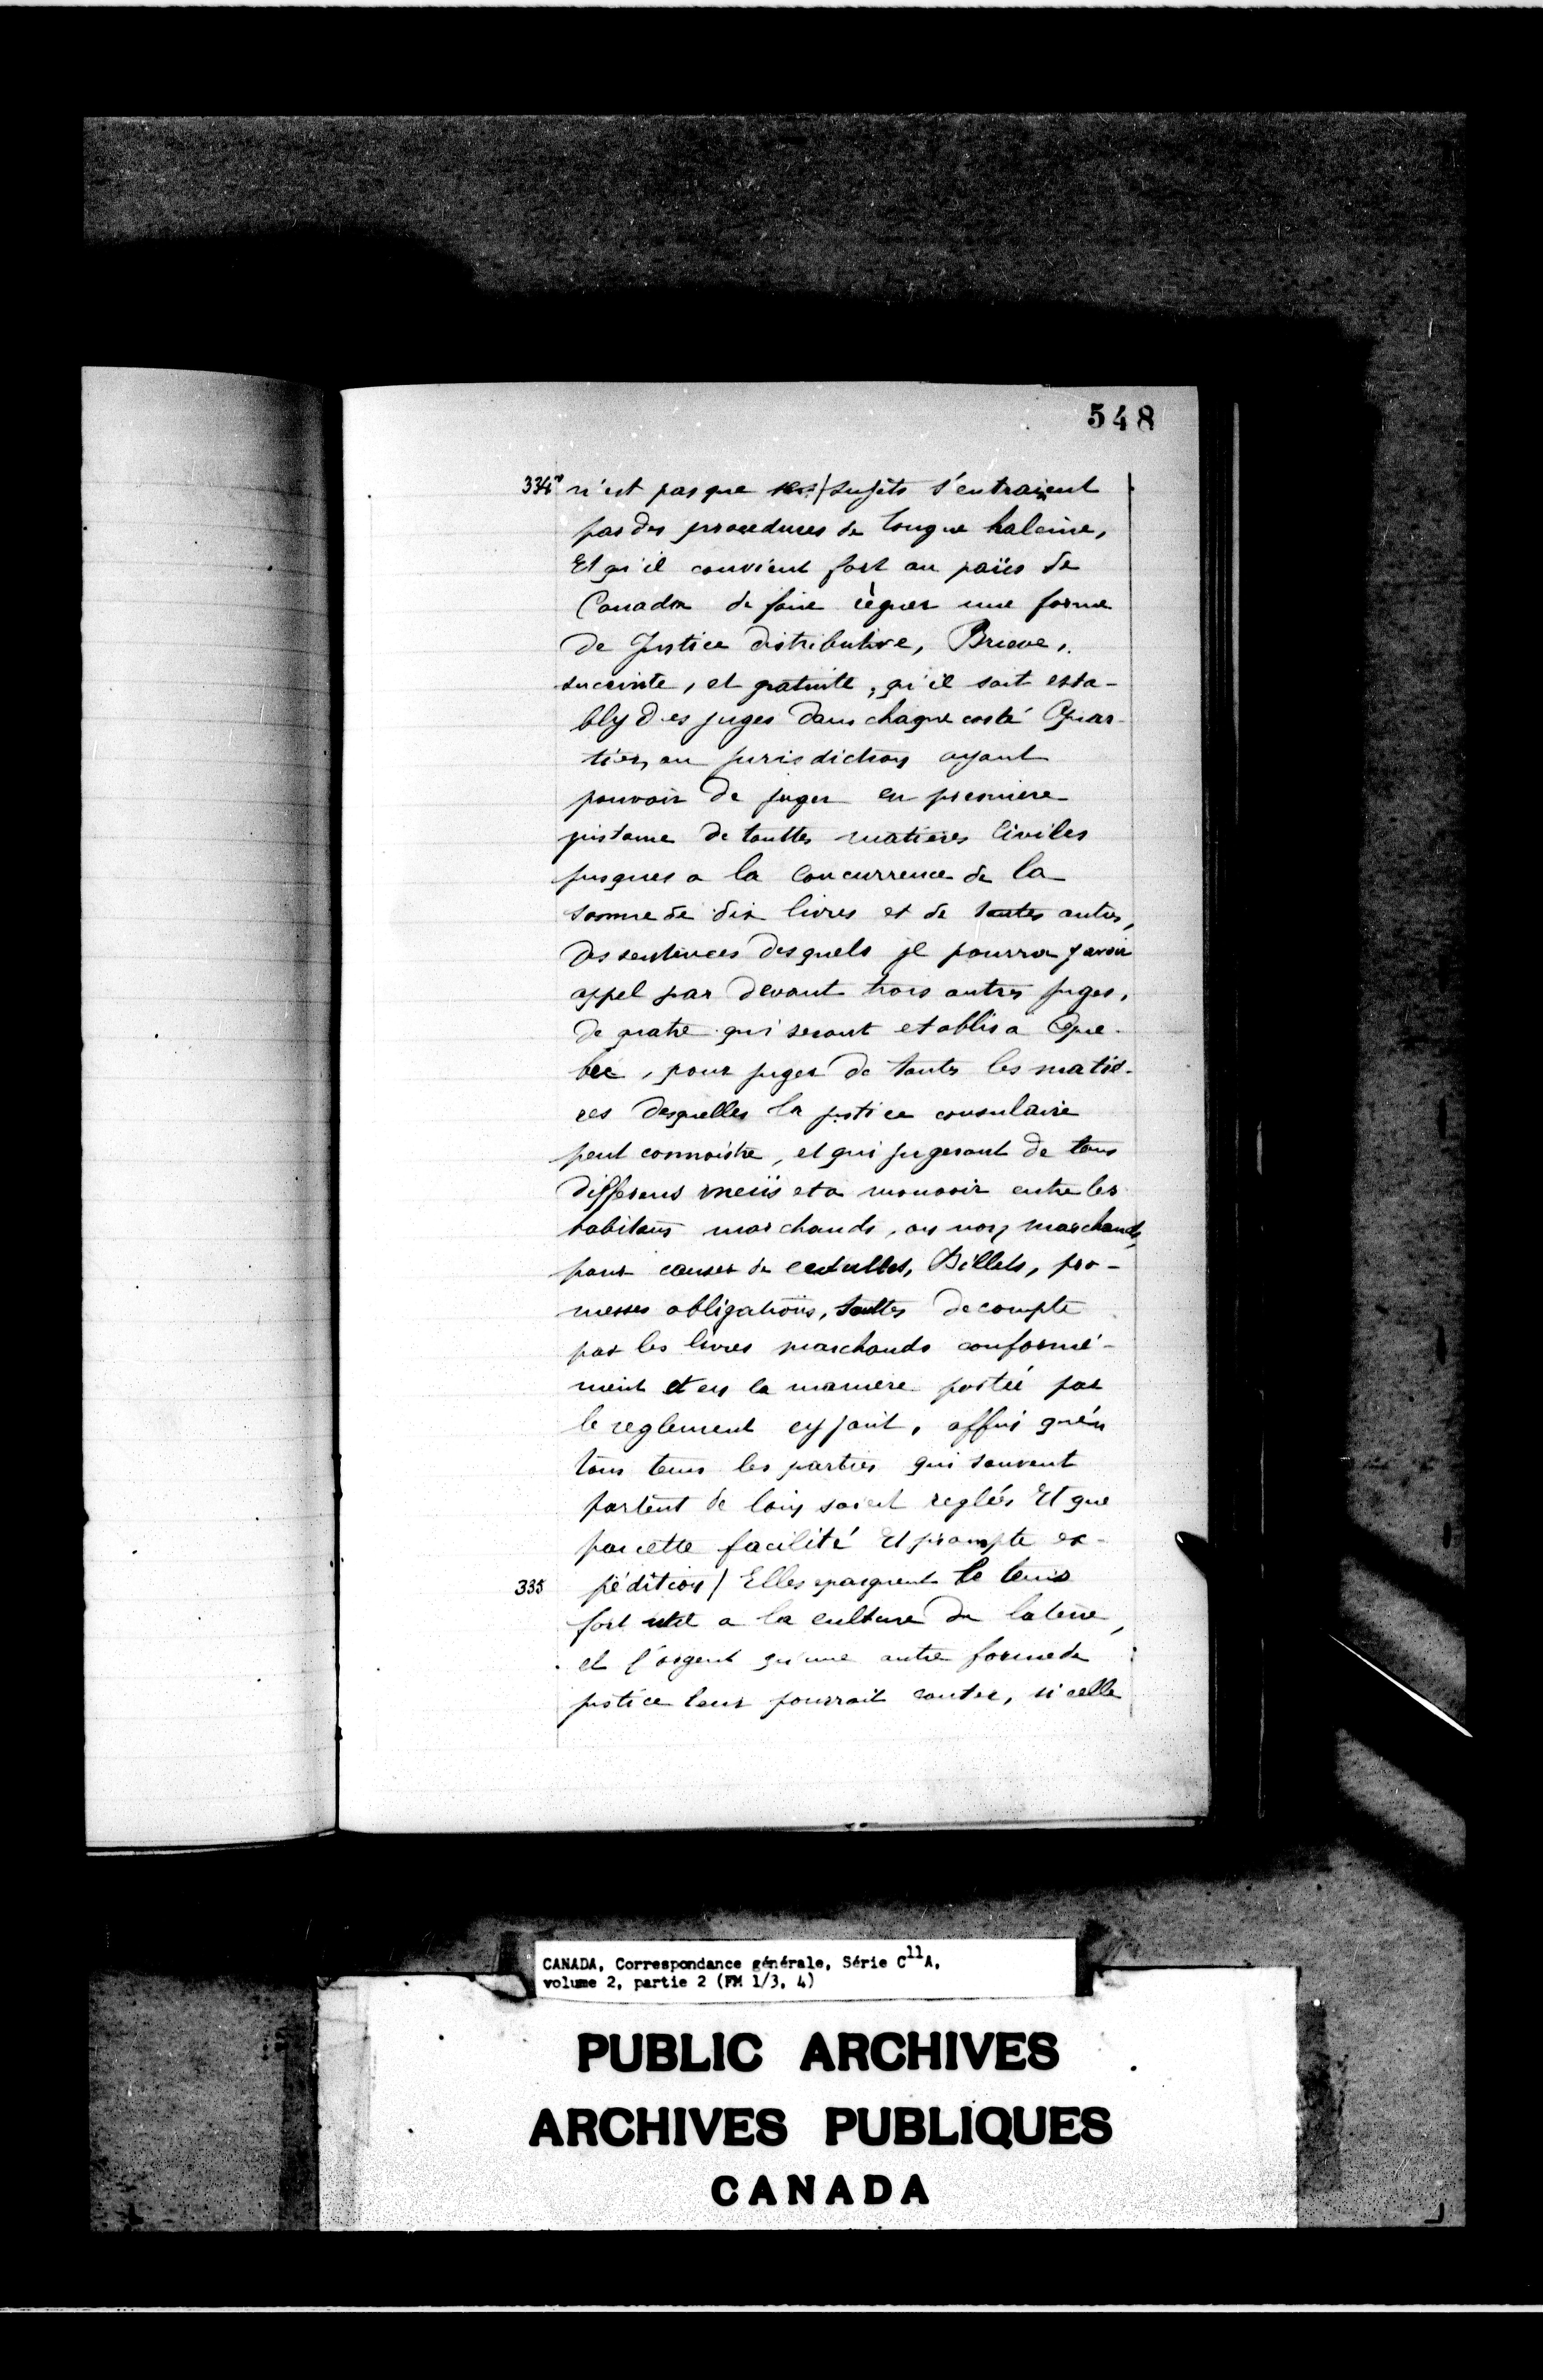 548
334v n'est pas que ses/sujets s'entrainent
par des procedures de longue haleine,
Et qu'il convient fort au païis de
Canada de faire règner une forme
de Justice distributive, Brieve,
succinte, et gratuite, qu'il soit esta-
bly des juges dans chaque costé Quar-
tier, ou jurisdiction ayant
pouvoir de juger en premiere
jnstance de touttes matieres Civiles
jusques a la Concurrence de la
somme de dix livres et de toutes autres,
des sentences desquels jl pourra y avoir
appel par devant trois autres juges,
de quatre qui seront etablis a Que-
bec, pour juger de toutes les matiè-
res desquelles la justice consulaire
peut connoistre, et qui jugeront de tous
differens meüs et a mouvoir entre les
habitans marchands, ou non marchands,
pour causes de cedulles, Billets, pro-
messes obligations, soultes de compte
par les livres marchands conformé-
ment et en la maniere portée par
le reglement cy joint, affin qu'en
tous tems les parties qui souvent
partent de loin soient reglées Et que
par cette facilité Et prompte ex-
335 pédition/ Elles epargnent le tems
fort utile a la culture de la terre,
et l'argent qu'une autre forme de
justice leur pourroit couter, si celle
CANADA, Correspondance générale, Série C11A,
volume 2, partie 2 (FM 1/3, 4)
PUBLIC ARCHIVES
ARCHIVES PUBLIQUES
CANADA